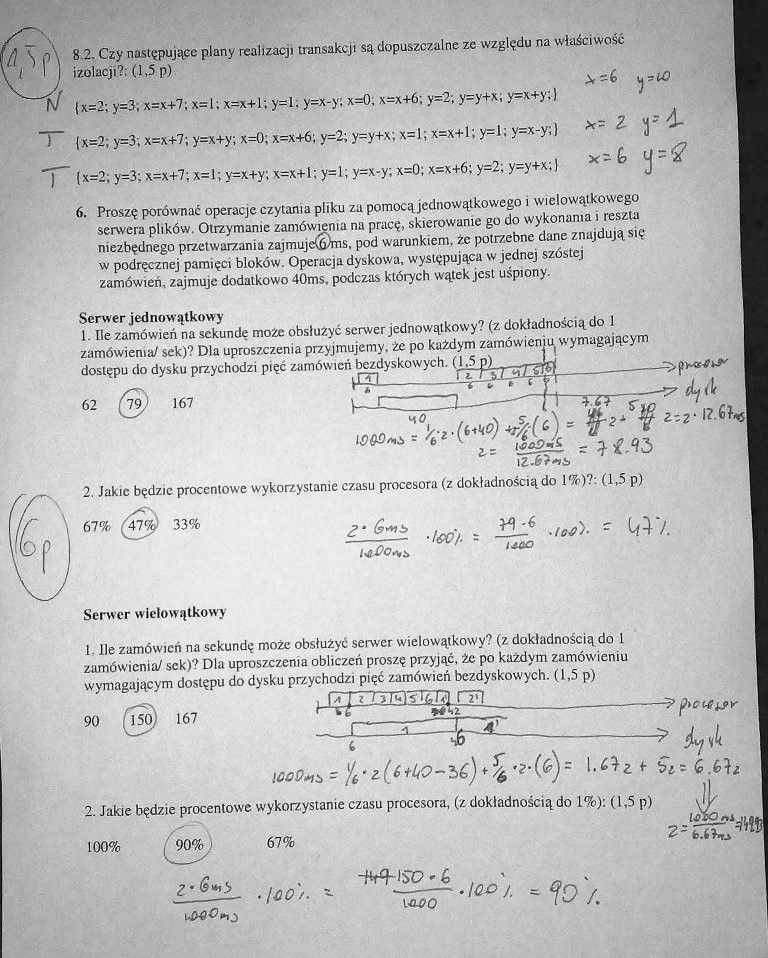 1,5p
8.2. Czy następujące plany realizacji transakcji są dopuszczalne ze względu na właściwość
izolacji?: (1,5 p)
x=6 y=10
N {x=2; y=3; x=x+7; x=1; x=x+1; y=1; y=x-y; x=0; x=x+6; y=2; y=y+x; y=x+y;}
T {x=2; y=3; x=x+7; y=x+y; x=0; x=x+6; y=2; y=y+x; x=1; x=x+1; y=1; y=x-y;} x= 2 y= 1
T {x=2; y=3; x=x+7; x=1; y=x+y; x=x+1; y=1; y=x-y; x=0; x=x+6; y=2; y=y+x;} x=6 y=8
6. Proszę porównać operacje czytania pliku za pomocą jednowątkowego i wielowątkowego
serwera plików. Otrzymanie zamówienia na pracę, skierowanie go do wykonania i reszta
niezbędnego przetwarzania zajmuje 6 ms, pod warunkiem, że potrzebne dane znajdują się
w podręcznej pamięci bloków. Operacja dyskowa, występująca w jednej szóstej
zamówień, zajmuje dodatkowo 40ms, podczas których wątek jest uśpiony.
Serwer jednowątkowy
1. Ile zamówień na sekundę może obsłużyć serwer jednowątkowy? (z dokładnością do 1
zamówienia/ sek)? Dla uproszczenia przyjmujemy, że po każdym zamówieniu wymagającym
dostępu do dysku przychodzi pięć zamówień bezdyskowych. (1,5 p)
1 2 3 4 5 6 procesor
6 6 6 6 6 6
dysk
62 79 167
40
1000ms = 1/6·z·(6+40) + z·5/6(6) = 7.67 z + 5 z = z·12.67ms
z = 1000ms / 12.67ms = 78.93
2. Jakie będzie procentowe wykorzystanie czasu procesora (z dokładnością do 1%)?: (1,5 p)
6p
67% 47% 33%
z·6ms / 1000ms ·100% = 79·6 / 1000 ·100% = 47%
Serwer wielowątkowy
1. Ile zamówień na sekundę może obsłużyć serwer wielowątkowy? (z dokładnością do 1
zamówienia/ sek)? Dla uproszczenia obliczeń proszę przyjąć, że po każdym zamówieniu
wymagającym dostępu do dysku przychodzi pięć zamówień bezdyskowych. (1,5 p)
1 2 3 4 5 6 1' 2' procesor
6 6 42
90 150 167
1 1' dysk
6 46
1000ms = 1/6·z(6+40-36) + 5/6·z·(6) = 1.67z + 5z = 6.67z
2. Jakie będzie procentowe wykorzystanie czasu procesora, (z dokładnością do 1%): (1,5 p)
z = 1000ms / 6.67ms
100% 90% 67%
z·6ms / 1000ms ·100% = 150·6 / 1000 ·100% = 90%